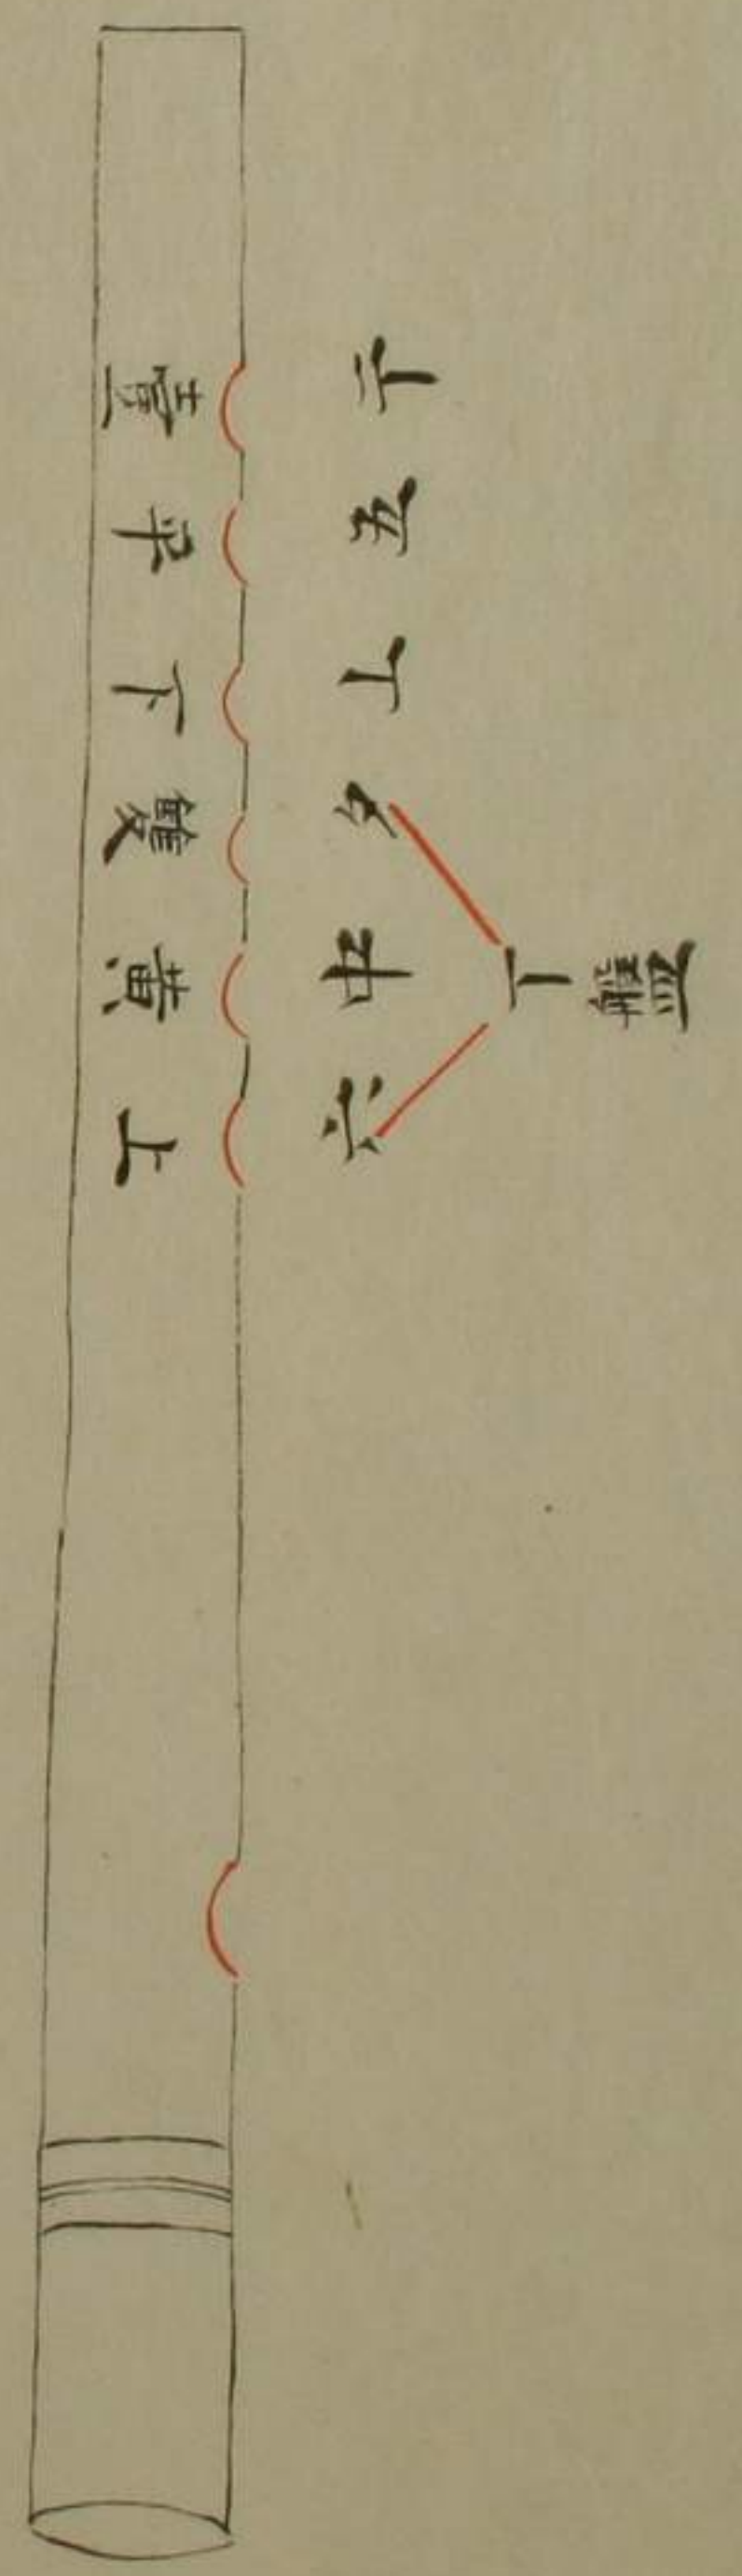 盤
丁
干五丄夕中六
壹平下雙黄上